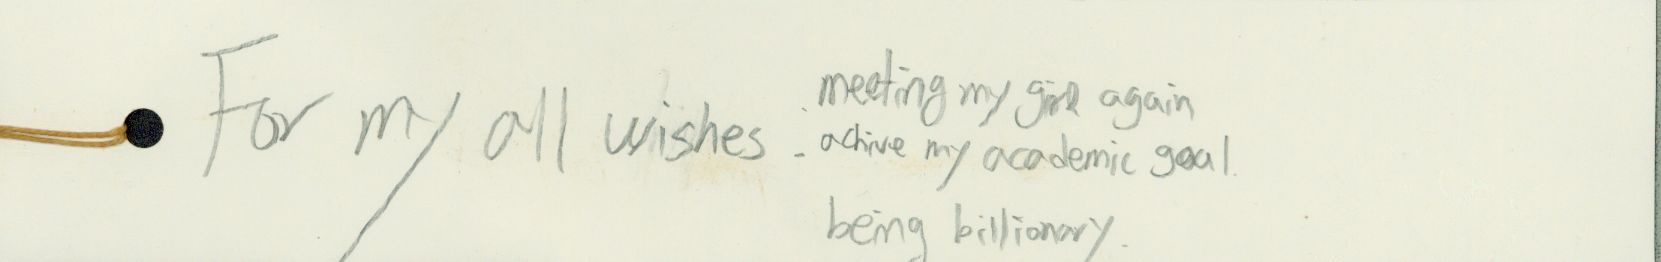 For my all wishes :
meeting my girl again
achive my academic goal.
being billionary.